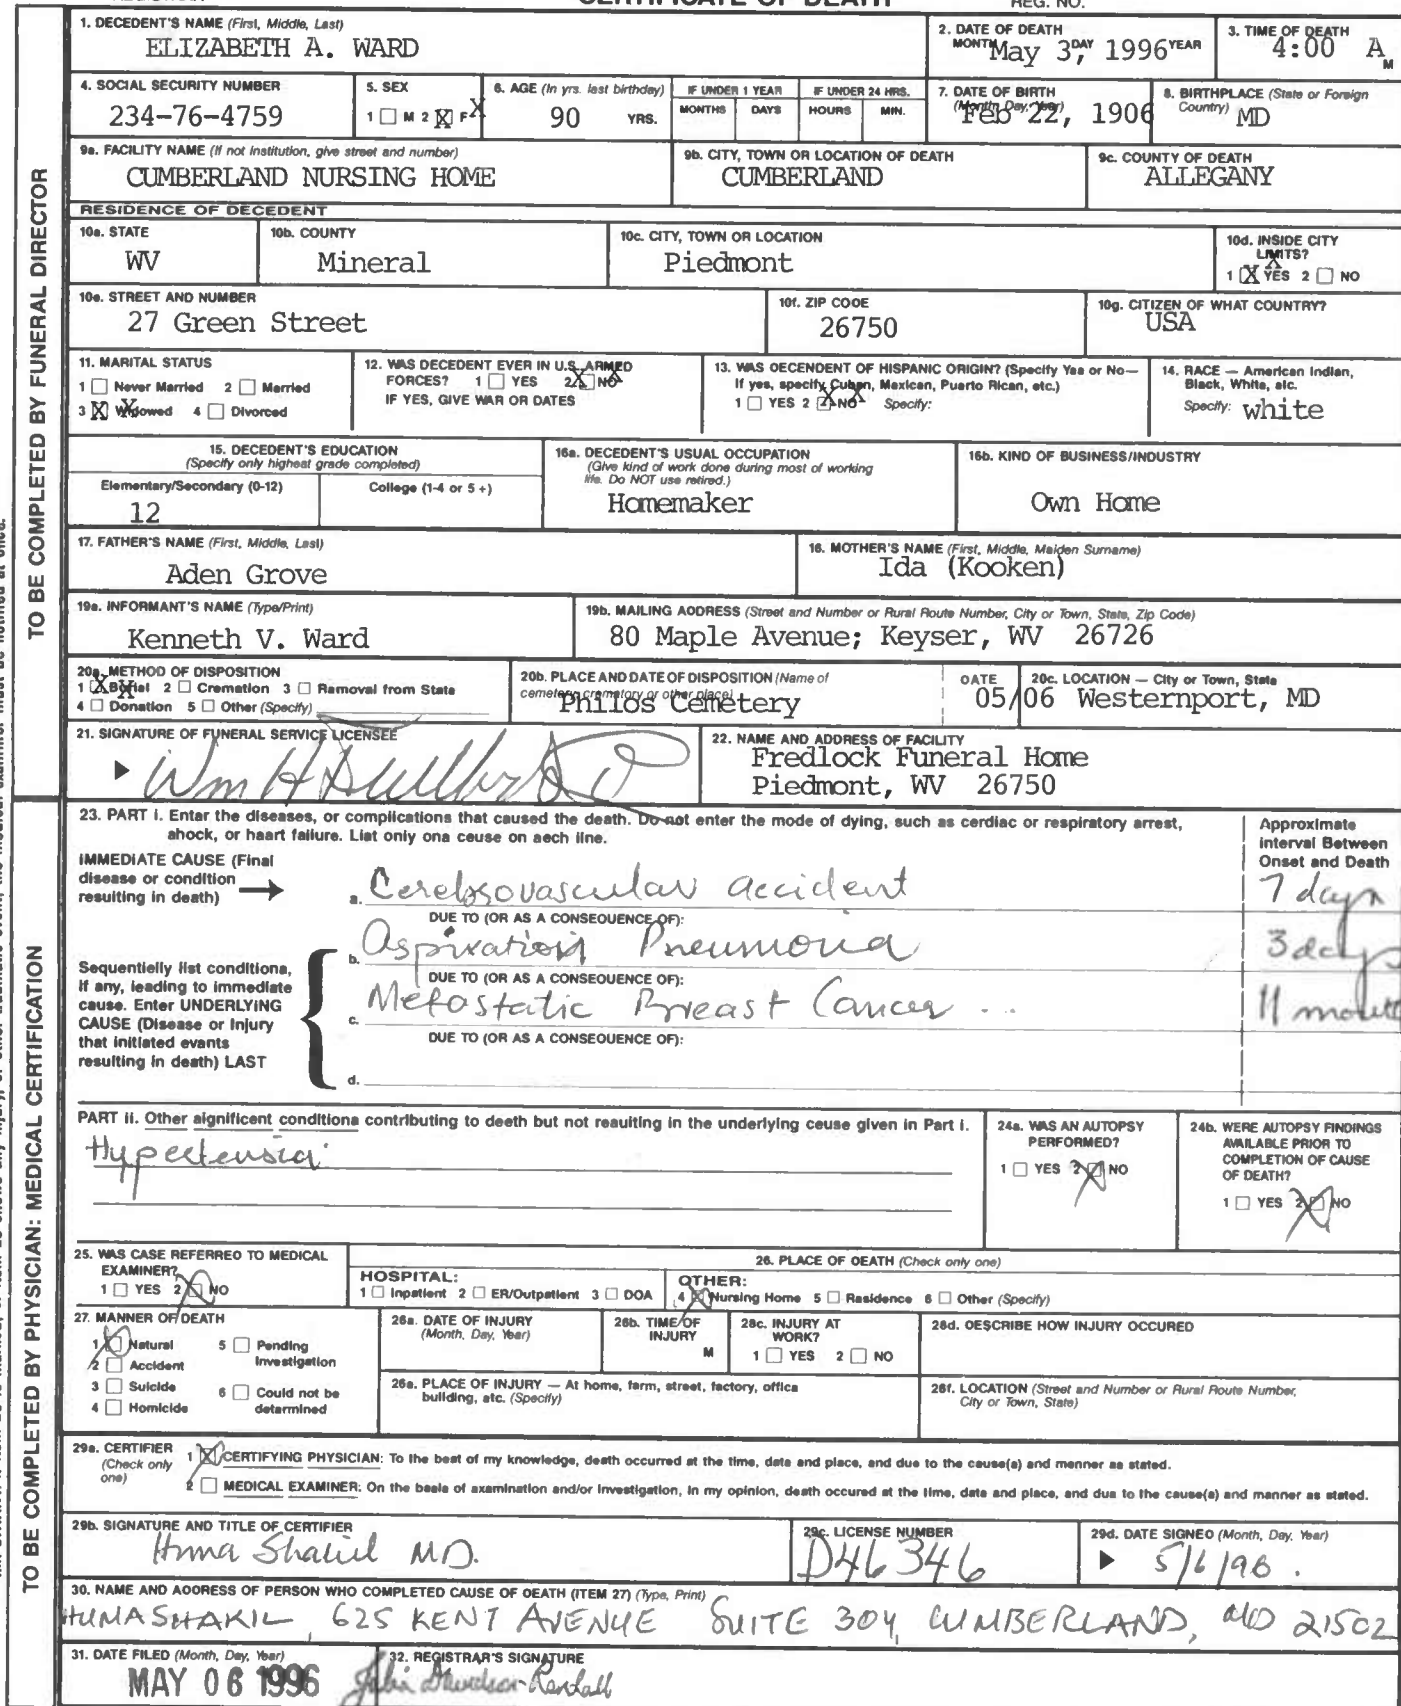 CERTIFICATE OF DEATH
REG. NO.
1. DECEDENT'S NAME (First, Middle, Last)
ELIZABETH A. WARD
2. DATE OF DEATH
MONTH DAY YEAR
May 3, 1996
3. TIME OF DEATH
4:00 A M
4. SOCIAL SECURITY NUMBER
234-76-4759
5. SEX
1 ☐ M 2 ☒ F X
6. AGE (In yrs. last birthday)
90 YRS.
IF UNDER 1 YEAR
MONTHS DAYS
IF UNDER 24 HRS.
HOURS MIN.
7. DATE OF BIRTH
(Month, Day, Year)
Feb 22, 1906
8. BIRTHPLACE (State or Foreign
Country) MD
9a. FACILITY NAME (If not institution, give street and number)
CUMBERLAND NURSING HOME
9b. CITY, TOWN OR LOCATION OF DEATH
CUMBERLAND
9c. COUNTY OF DEATH
ALLEGANY
RESIDENCE OF DECEDENT
10a. STATE
WV
10b. COUNTY
Mineral
10c. CITY, TOWN OR LOCATION
Piedmont
10d. INSIDE CITY
LIMITS?
1 ☒ YES 2 ☐ NO
10e. STREET AND NUMBER
27 Green Street
10f. ZIP CODE
26750
10g. CITIZEN OF WHAT COUNTRY?
USA
11. MARITAL STATUS
1 ☐ Never Married 2 ☐ Married
3 ☒ Widowed 4 ☐ Divorced
12. WAS DECEDENT EVER IN U.S. ARMED
FORCES? 1 ☐ YES 2 ☒ NO
IF YES, GIVE WAR OR DATES
13. WAS DECENDENT OF HISPANIC ORIGIN? (Specify Yes or No—
If yes, specify Cuban, Mexican, Puerto Rican, etc.)
1 ☐ YES 2 ☒ NO Specify:
14. RACE — American Indian,
Black, White, etc.
Specify: white
15. DECEDENT'S EDUCATION
(Specify only highest grade completed)
Elementary/Secondary (0-12)
12
College (1-4 or 5 +)
16a. DECEDENT'S USUAL OCCUPATION
(Give kind of work done during most of working
life. Do NOT use retired.)
Homemaker
16b. KIND OF BUSINESS/INDUSTRY
Own Home
17. FATHER'S NAME (First, Middle, Last)
Aden Grove
18. MOTHER'S NAME (First, Middle, Maiden Surname)
Ida (Kooken)
19a. INFORMANT'S NAME (Type/Print)
Kenneth V. Ward
19b. MAILING ADDRESS (Street and Number or Rural Route Number, City or Town, State, Zip Code)
80 Maple Avenue; Keyser, WV 26726
20a. METHOD OF DISPOSITION
1 ☒ Burial 2 ☐ Cremation 3 ☐ Removal from State
4 ☐ Donation 5 ☐ Other (Specify)
20b. PLACE AND DATE OF DISPOSITION (Name of
cemetery, crematory or other place)
Philos Cemetery
DATE
05/06
20c. LOCATION — City or Town, State
Westernport, MD
21. SIGNATURE OF FUNERAL SERVICE LICENSEE
Wm H
22. NAME AND ADDRESS OF FACILITY
Fredlock Funeral Home
Piedmont, WV 26750
23. PART I. Enter the diseases, or complications that caused the death. Do not enter the mode of dying, such as cardiac or respiratory arrest,
shock, or heart failure. List only one cause on each line.
Approximate
Interval Between
Onset and Death
IMMEDIATE CAUSE (Final
disease or condition
resulting in death)
a. Cerebrovascular accident 7 days
DUE TO (OR AS A CONSEQUENCE OF):
b. Aspiration Pneumonia 3 days
DUE TO (OR AS A CONSEQUENCE OF):
c. Metastatic Breast Cancer 11 months
DUE TO (OR AS A CONSEQUENCE OF):
d.
Sequentially list conditions,
if any, leading to immediate
cause. Enter UNDERLYING
CAUSE (Disease or injury
that initiated events
resulting in death) LAST
PART II. Other significant conditions contributing to death but not resulting in the underlying cause given in Part I.
Hypertension
24a. WAS AN AUTOPSY
PERFORMED?
1 ☐ YES 2 ☒ NO
24b. WERE AUTOPSY FINDINGS
AVAILABLE PRIOR TO
COMPLETION OF CAUSE
OF DEATH?
1 ☐ YES 2 ☒ NO
25. WAS CASE REFERRED TO MEDICAL
EXAMINER?
1 ☐ YES 2 ☒ NO
26. PLACE OF DEATH (Check only one)
HOSPITAL:
1 ☐ Inpatient 2 ☐ ER/Outpatient 3 ☐ DOA
OTHER:
4 ☒ Nursing Home 5 ☐ Residence 6 ☐ Other (Specify)
27. MANNER OF DEATH
1 ☒ Natural
2 ☐ Accident
3 ☐ Suicide
4 ☐ Homicide
5 ☐ Pending
Investigation
6 ☐ Could not be
determined
28a. DATE OF INJURY
(Month, Day, Year)
28b. TIME OF
INJURY
M
28c. INJURY AT
WORK?
1 ☐ YES 2 ☐ NO
28d. DESCRIBE HOW INJURY OCCURED
28e. PLACE OF INJURY — At home, farm, street, factory, office
building, etc. (Specify)
28f. LOCATION (Street and Number or Rural Route Number,
City or Town, State)
29a. CERTIFIER
(Check only
one)
1 ☒ CERTIFYING PHYSICIAN: To the best of my knowledge, death occurred at the time, date and place, and due to the cause(s) and manner as stated.
2 ☐ MEDICAL EXAMINER: On the basis of examination and/or investigation, in my opinion, death occured at the time, date and place, and due to the cause(s) and manner as stated.
29b. SIGNATURE AND TITLE OF CERTIFIER
Huma Shakil MD.
29c. LICENSE NUMBER
D46346
29d. DATE SIGNED (Month, Day, Year)
5/6/96.
30. NAME AND ADDRESS OF PERSON WHO COMPLETED CAUSE OF DEATH (ITEM 27) (Type, Print)
HUMA SHAKIL, 625 KENT AVENUE SUITE 304, CUMBERLAND, MD 21502
31. DATE FILED (Month, Day, Year)
MAY 06 1996
32. REGISTRAR'S SIGNATURE
Davidson-Randall
TO BE COMPLETED BY FUNERAL DIRECTOR
TO BE COMPLETED BY PHYSICIAN: MEDICAL CERTIFICATION